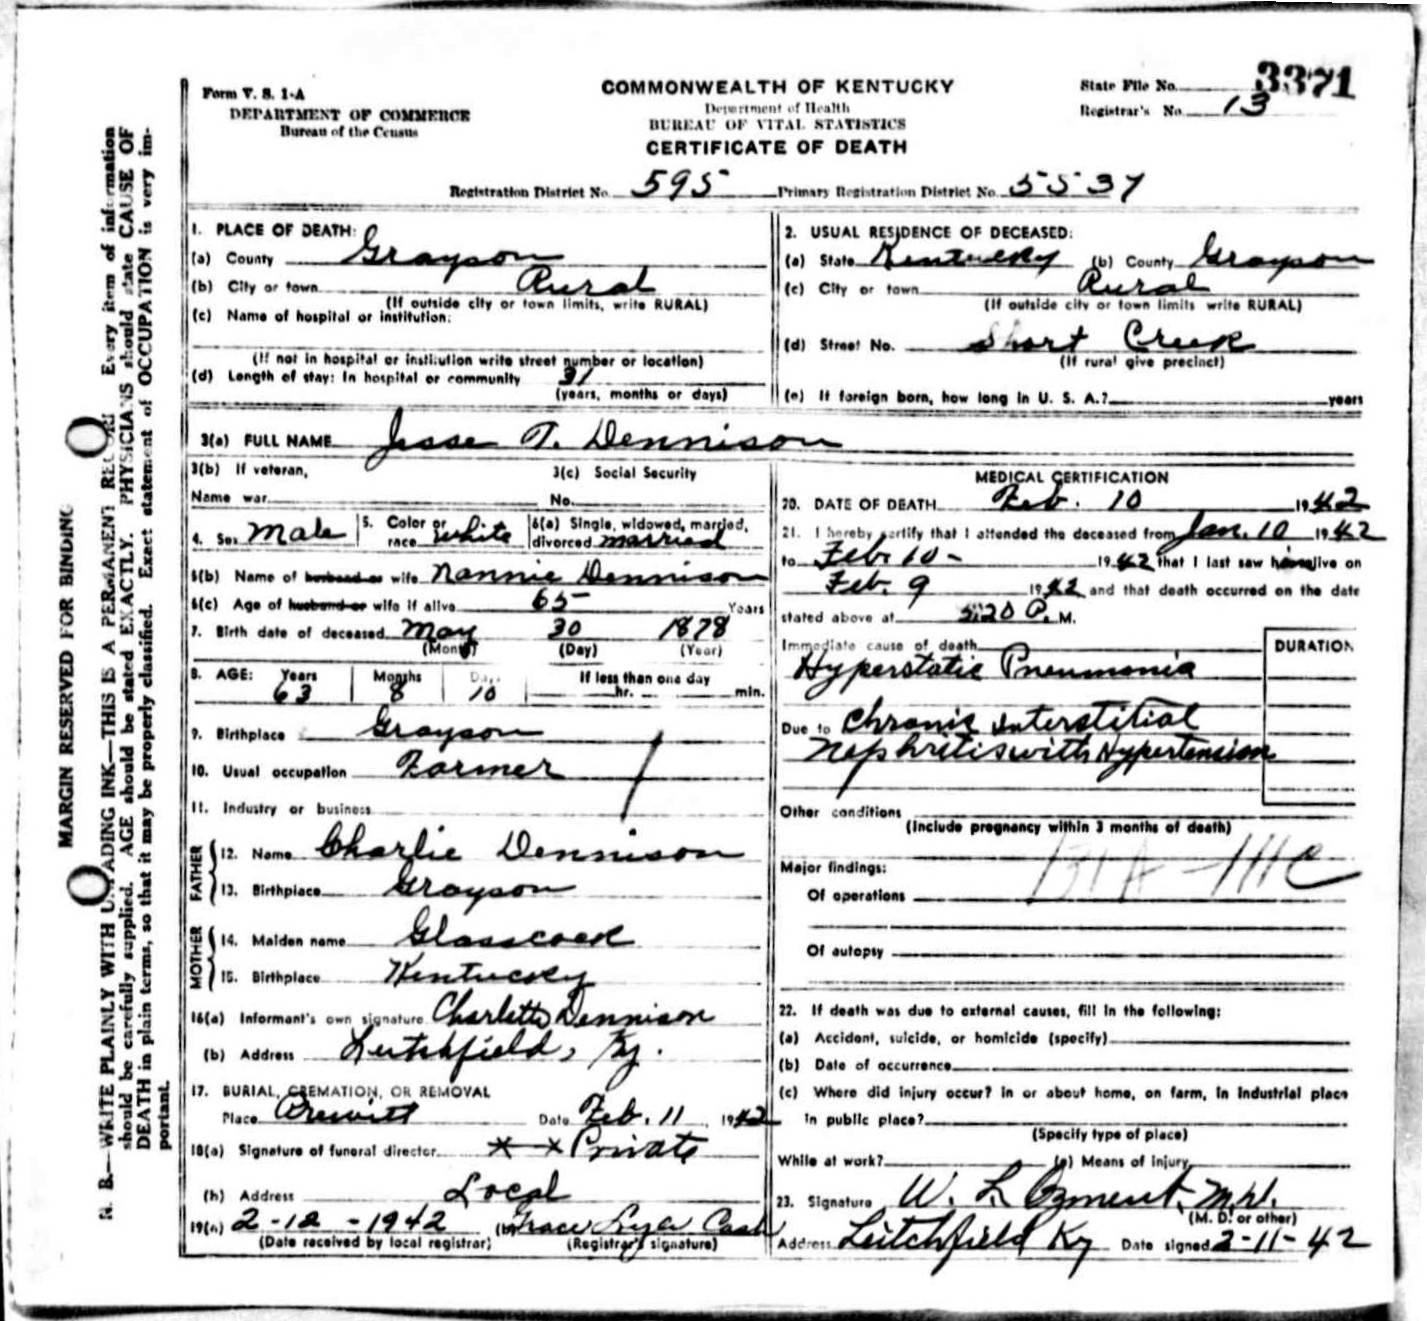 Form V. S. 1-A
DEPARTMENT OF COMMERCE
Bureau of the Census
COMMONWEALTH OF KENTUCKY
Department of Health
BUREAU OF VITAL STATISTICS
CERTIFICATE OF DEATH
State File No. 3371
Registrar's No. 13
Registration District No. 595 Primary Registration District No. 5537
MARGIN RESERVED FOR BINDING
N. B.—WRITE PLAINLY WITH UNFADING INK—THIS IS A PERMANENT RECORD Every item of information
should be carefully supplied. AGE should be stated EXACTLY. PHYSICIANS should state CAUSE OF
DEATH in plain terms, so that it may be properly classified. Exact statement of OCCUPATION is very im-
portant.
1. PLACE OF DEATH:
(a) County Grayson
(b) City or town Rural
(If outside city or town limits, write RURAL)
(c) Name of hospital or institution:
(If not in hospital or institution write street number or location)
(d) Length of stay: In hospital or community 31
(years, months or days)
2. USUAL RESIDENCE OF DECEASED:
(a) State Kentucky (b) County Grayson
(c) City or town Rural
(If outside city or town limits write RURAL)
(d) Street No. Short Creek
(If rural give precinct)
(e) If foreign born, how long in U. S. A.? years
3(a) FULL NAME Jesse T. Dennison
3(b) If veteran, 3(c) Social Security
Name war No.
4. Sex Male 5. Color or race white 6(a) Single, widowed, married, divorced married
6(b) Name of husband or wife Nannie Dennison
6(c) Age of husband or wife if alive 65 Years
7. Birth date of deceased May 30 1878
(Month) (Day) (Year)
8. AGE: Years Months Days If less than one day
63 8 10 hr. min.
9. Birthplace Grayson
10. Usual occupation Farmer
11. Industry or business
FATHER
12. Name Charlie Dennison
13. Birthplace Grayson
MOTHER
14. Maiden name Glasscock
15. Birthplace Kentucky
16(a) Informant's own signature Charlette Dennison
(b) Address Leitchfield, Ky.
17. BURIAL, CREMATION, OR REMOVAL
Place Prewitt Date Feb. 11 1942
18(a) Signature of funeral director x x Private
(b) Address Local
19(a) 2-12-1942 (b) Grace Cash
(Date received by local registrar) (Registrar's signature)
MEDICAL CERTIFICATION
20. DATE OF DEATH Feb. 10 1942
21. I hereby certify that I attended the deceased from Jan. 10 1942
to Feb. 10- 1942 that I last saw him alive on
Feb. 9 1942 and that death occurred on the date
stated above at 5:20 P. M.
Immediate cause of death DURATION
Hyperstatic Pneumonia
Due to Chronic Interstitial
Nephritis with Hypertension
Other conditions
(Include pregnancy within 3 months of death)
Major findings:
Of operations
Of autopsy
22. If death was due to external causes, fill in the following:
(a) Accident, suicide, or homicide (specify)
(b) Date of occurrence
(c) Where did injury occur? in or about home, on farm, in industrial place
in public place?
(Specify type of place)
While at work? (e) Means of injury
23. Signature W. L. Ozment, M.D.
(M. D. or other)
Address Leitchfield Ky Date signed 2-11-42